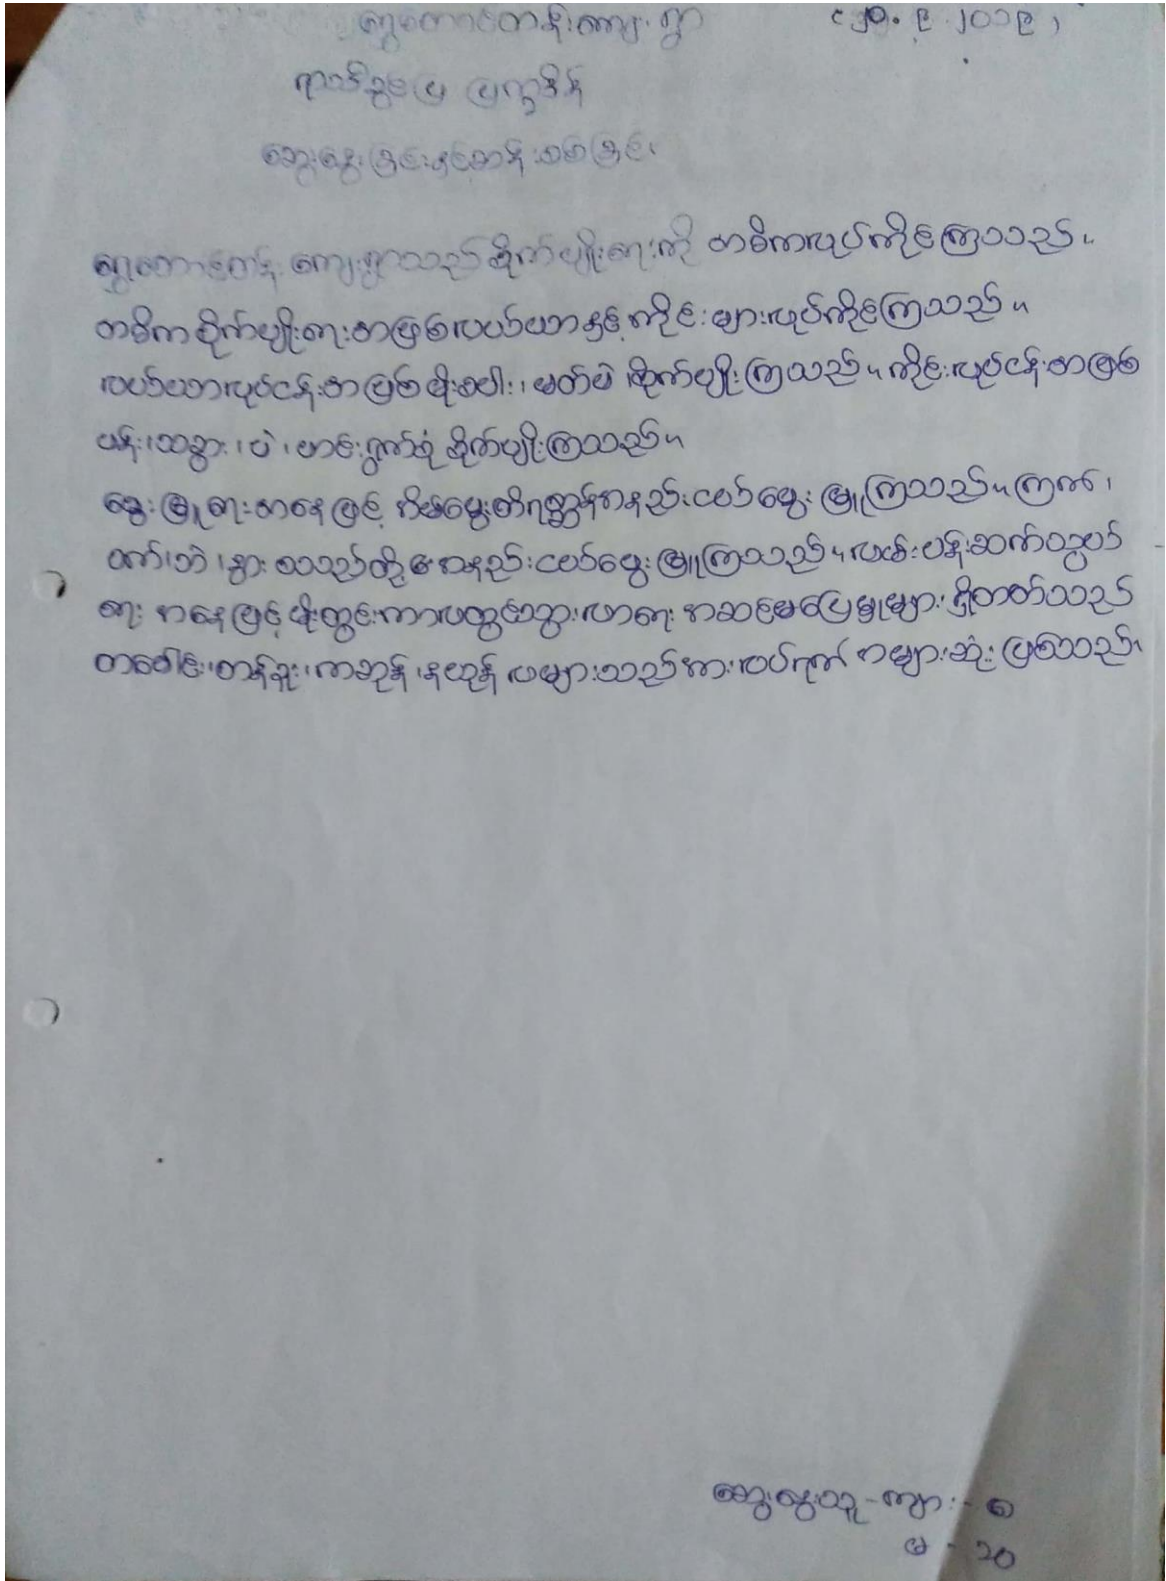 ရွှေတောင်တန်းကျေးရွာ (၂၀.၉.၂၀၁၉)
ရာသီခွင်ပြ ပြက္ခဒိန်
ဆွေးနွေးခြင်းနှင့်ဆန်းစစ်ခြင်း
ရွှေတောင်တန်းကျေးရွာသည် စိုက်ပျိုးရေးကို အဓိကလုပ်ကိုင်ကြသည်။
အဓိကစိုက်ပျိုးရေးအဖြစ်လယ်ယာနှင့် ကိုင်းများလုပ်ကိုင်ကြသည်။
လယ်ယာလုပ်ငန်းအဖြစ်မိုးစပါး၊ မတ်ပဲ စိုက်ပျိုးကြသည်။ ကိုင်းလုပ်ငန်းအဖြစ်
ပန်း၊သခွား၊ပဲ၊ဟင်းရွက်စုံ စိုက်ပျိုးကြသည်။
မွေးမြူရေးအနေဖြင့် အိမ်မွေးတိရစ္ဆာန်အနည်းငယ်မွေးမြူကြသည်။ကြက်၊
ဝက်၊ဘဲ၊နွား စသည်တို့ အနည်းငယ်မွေးမြူကြသည်။လမ်းပန်းဆက်သွယ်
ရေး အနေဖြင့် မိုးတွင်းကာလတွင်သွားလာရေး အဆင်မပြေမှုများ ရှိတတ်သည်
တပေါင်း၊တန်ခူး၊ကဆုန်၊နယုန် လများသည်အားလပ်ရက် အများဆုံးဖြစ်သည်၊
ဆွေးနွေးသူ-ကျား-၈
မ - ၁၀